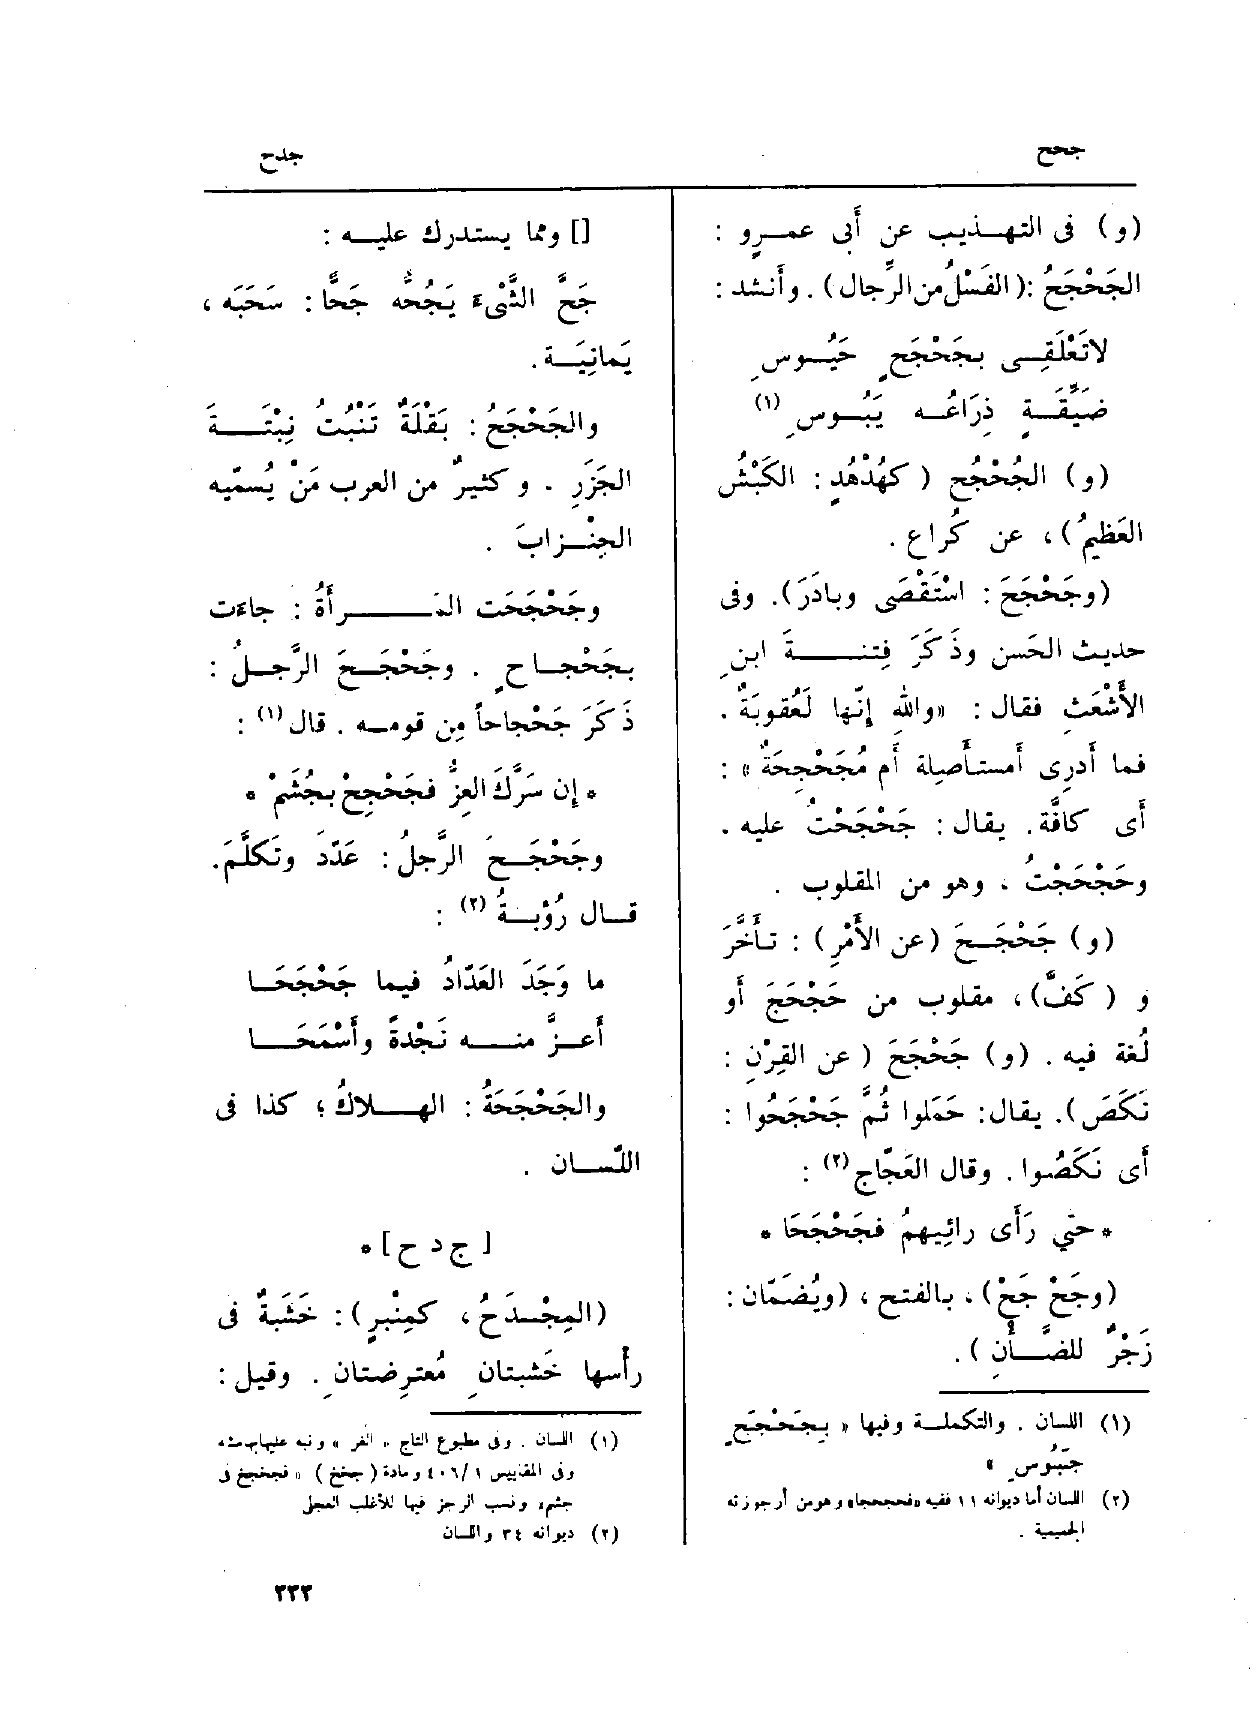 جحح
جدح
(و) فى التهـذيب عن أَبى عمـرٍو :
الجَحْجَحُ :(الفَسْلُ من الرِّجال) . وأَنشد :
لاتَعْلَقِـى بجَحْجَحٍ حَيُـوسِ
ضَيِّقَـةٍ ذِرَاعُـه يَبُـوسِ (١)
(و) الجُحْجُح ( كهُدْهُدٍ : الكَبْشُ
العَظيمُ) ، عن كُراع .
(وجَحْجَحَ : اسْتَقْصَى وبادَرَ). وفى
حديث الحَسن وذَكَرَ فِتنـــةَ ابنِ
الأَشْعَثِ فقال : «والله إِنّها لَعُقوبَةٌ .
فما أَدرِى أَمستأصِلة أَم مُجَحْجِحَةٌ » :
أَى كافَّة. يقال : جَحْجَحْتُ عليه .
وحَجْحَجْتُ ، وهو من المقلوب .
(و) جَحْجَــحَ (عن الأَمْرِ) : تـأَخَّرَ
و (كَفَّ) ، مقلوب من حَجْحَجَ أَو
لُغة فيه . (و) جَحْجَحَ ( عن القِرْنِ :
نَكَصَ). يقال: حَمَلوا ثُمَّ جَحْجَحُوا :
أَى نَكَصُوا . وقال العَجّاج (٢) :
* حتّى رَأَى رائِيهمُ فجَحْجَحَا *
(وجَحْ جَحْ) ، بالفتح ، (ويُضَمّان :
زَجْرٌ للضَّـأْنِ ) .
(١) اللسان . والتكملـة وفيها « بِجَحْجَحٍ
حَبُوسِ »
(٢) اللسان أما ديوانه ١١ ففيه «فحجحجا» وهو من أرجوزته
الجيمية .
[] ومما يستدرك عليــه :
جَحَّ الشَّىْءَ يَجُحُّه جَحًّا : سَحَبَه ،
يَمانِيَــة .
والجَحْجَحُ : بَقْلَةٌ تَنْبُت نِبْتَــةَ
الجَزَرِ . وكثيرٌ من العرب مَنْ يُسمّيه
الحِنْــزابَ .
وجَحْجَحَت المَــــرأَةُ : جاءَت
بجَحْجــاحٍ . وجَحْجَــحَ الرَّجــلُ :
ذَكَرَ جَحْجاحاً مِن قومـه . قال (١) :
* إِن سَرَّكَ العِزُّ فجَحْجِحْ بجُشَمْ *
وجَحْجَــحَ الرَّجلُ : عَدّدَ وتَكلَّمَ.
قــال رُؤبــةُ (٢) :
ما وَجَدَ العَدّادُ فيما جَحْجَحَــا
أَعــزَّ منــه نَجْدةً وأَسْمَحَــا
والجَحْجَحَةُ : الهــلاكُ ؛ كذا فى
اللّســان .
[ ج د ح ] *
(المِجْــدَحُ ، كمِنْبرٍ) : خَشَبَةٌ فى
رأْسها خَشَبتانِ مُعترِضتانِ . وقيل :
(١) اللسان . وفى مطبوع التاج « الفر » ونبه عليها بهامشه
وفى المقاييس ٤٠٦/١ ومادة ( جخخ ) « فجخجخ فى
جشم» ونسب الرجز فيها للأغلب العجلى
(٢) ديوانه ٣٤ واللسان
٣٣٣